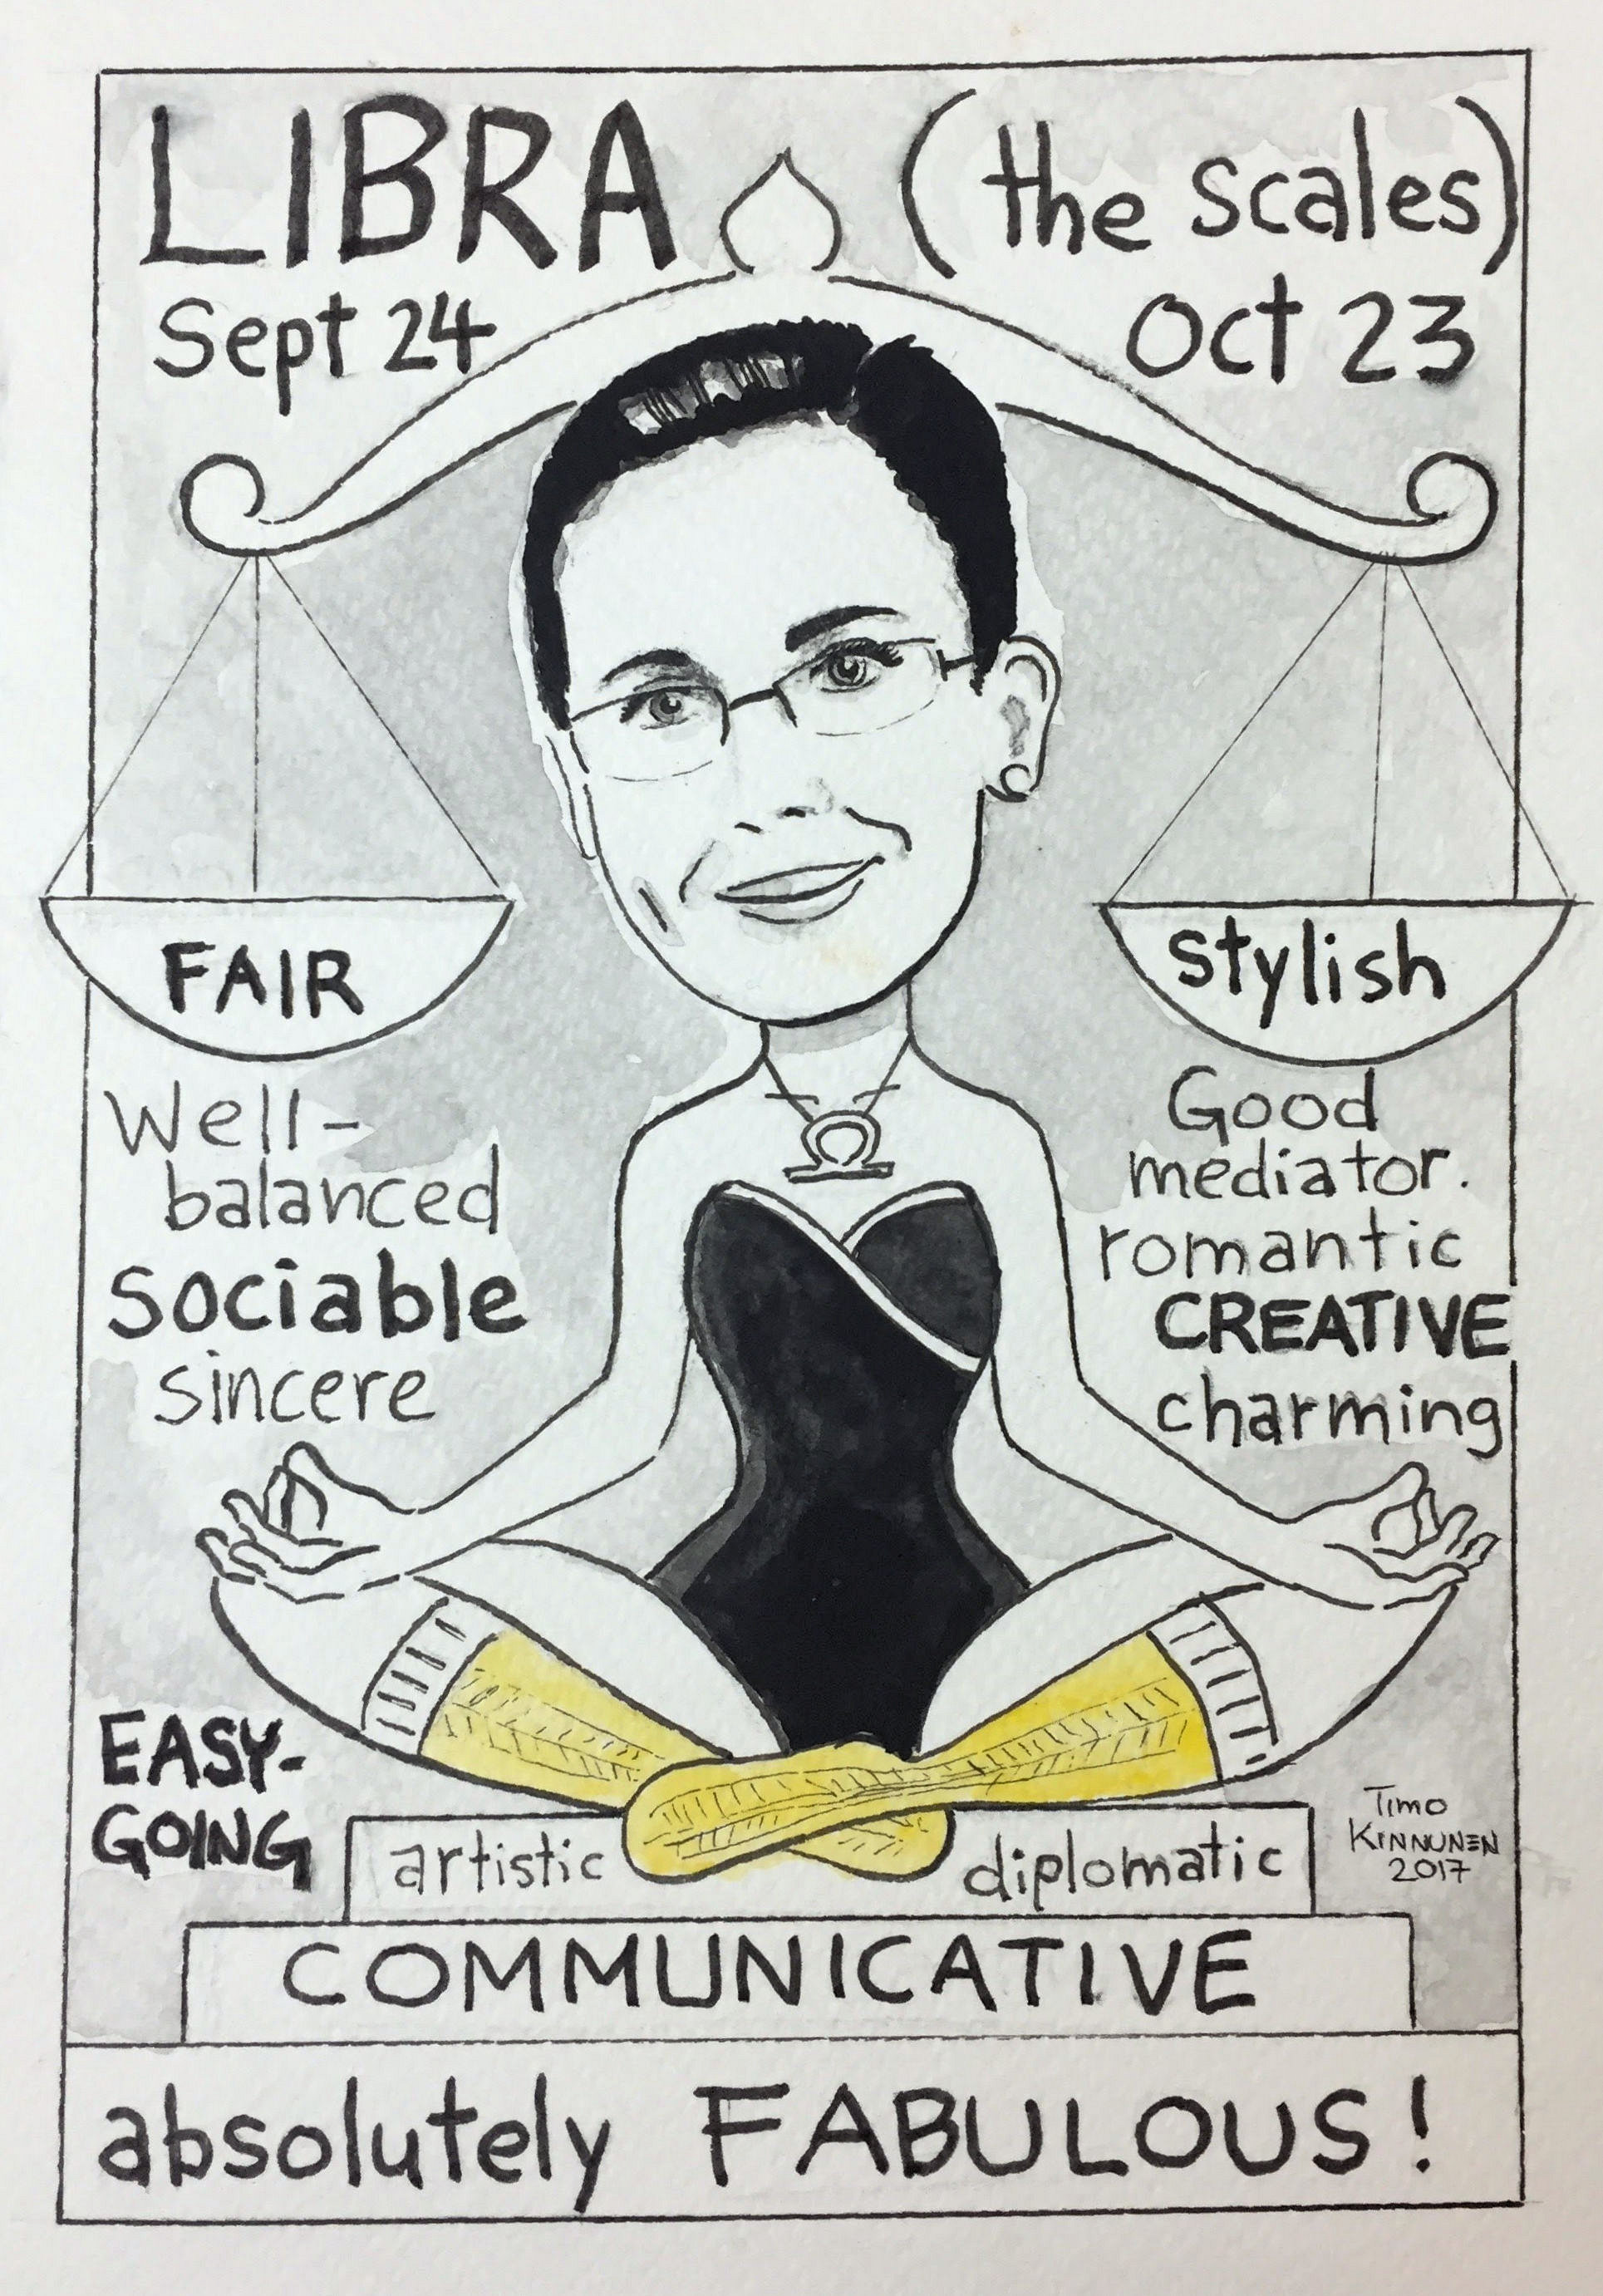 LIBRA (the scales)
Sept 24 Oct 23
FAIR
Stylish
Well-
balanced
sociable
sincere
Good
mediator.
romantic
CREATIVE
charming
EASY-
GOING
artistic diplomatic
TIMO
KINNUNEN
2017
COMMUNICATIVE
absolutely FABULOUS!